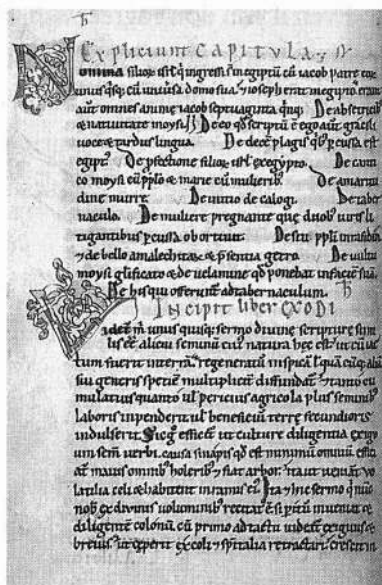 EXPLICIUNT CAPITULA
Nomina filioꝝ isrl̄ q̇ ingressi s̄ in egiptū cū iacob patre
unusq̄sq; cū universa domo sua ⁊ ioseph erat in egypto erant
aut̄ omnes anime iacob septuaginta q̇nq; De obstetricib
⁊ nativitate moysi De eo qđ scriptū ē ego aut̄ gracili
voce ⁊ tardus lingua. De decē plagis q̇b; pcussa est
egipt' De pfectione filioꝝ isrl̄ ex egypto. De canti
co moysi cū pplo ⁊ marie cū mulierib; De amaritu
dine murre De initio de calogi. De taber
naculo. De muliere pregnante que duob; viris li
tigantibus pcussa obortivit. De
⁊ de bello amalechitaꝝ ⁊ psentia getro. De vultu
moysi glificato ⁊ de velamine qđ ponebat in faciē suā.
De his qui offerunt ad tabernaculum.
INCIPIT liber EXODI
Videt m̄ unus quisq; sermo divine scripture simi
lis eē alicui seminū cui' natura hec est ut cū iac
tum fuerit in terrā regeneratū in spicā l' quācūq; aliā
sui generis spetiē multiplicet' diffundat' ⁊ tanto cu
mulatius quanto ul' peritius agricola plus semini
laboris inpenderit ul' beneficiū terrę fecundioris
indulserit. Sic g° efficet' ut culture diligentia exigu
um sem verbi. causa sinapis qđ est minimū omniū effici
at' maius omnib; holerib; ⁊ fiat arbor. ita ut veniat vo
latilia celi ⁊ habitent in ramis ei'. Ita ⁊ hic sermo q̇ nūc
nob ex divinis voluminib; recitat' ē si pitū inveniat ⁊
diligentē colonū cū primo adtactu videat' exiguus ⁊
brevis. ut ceperit excoli ⁊ spitalia retractari crescit in